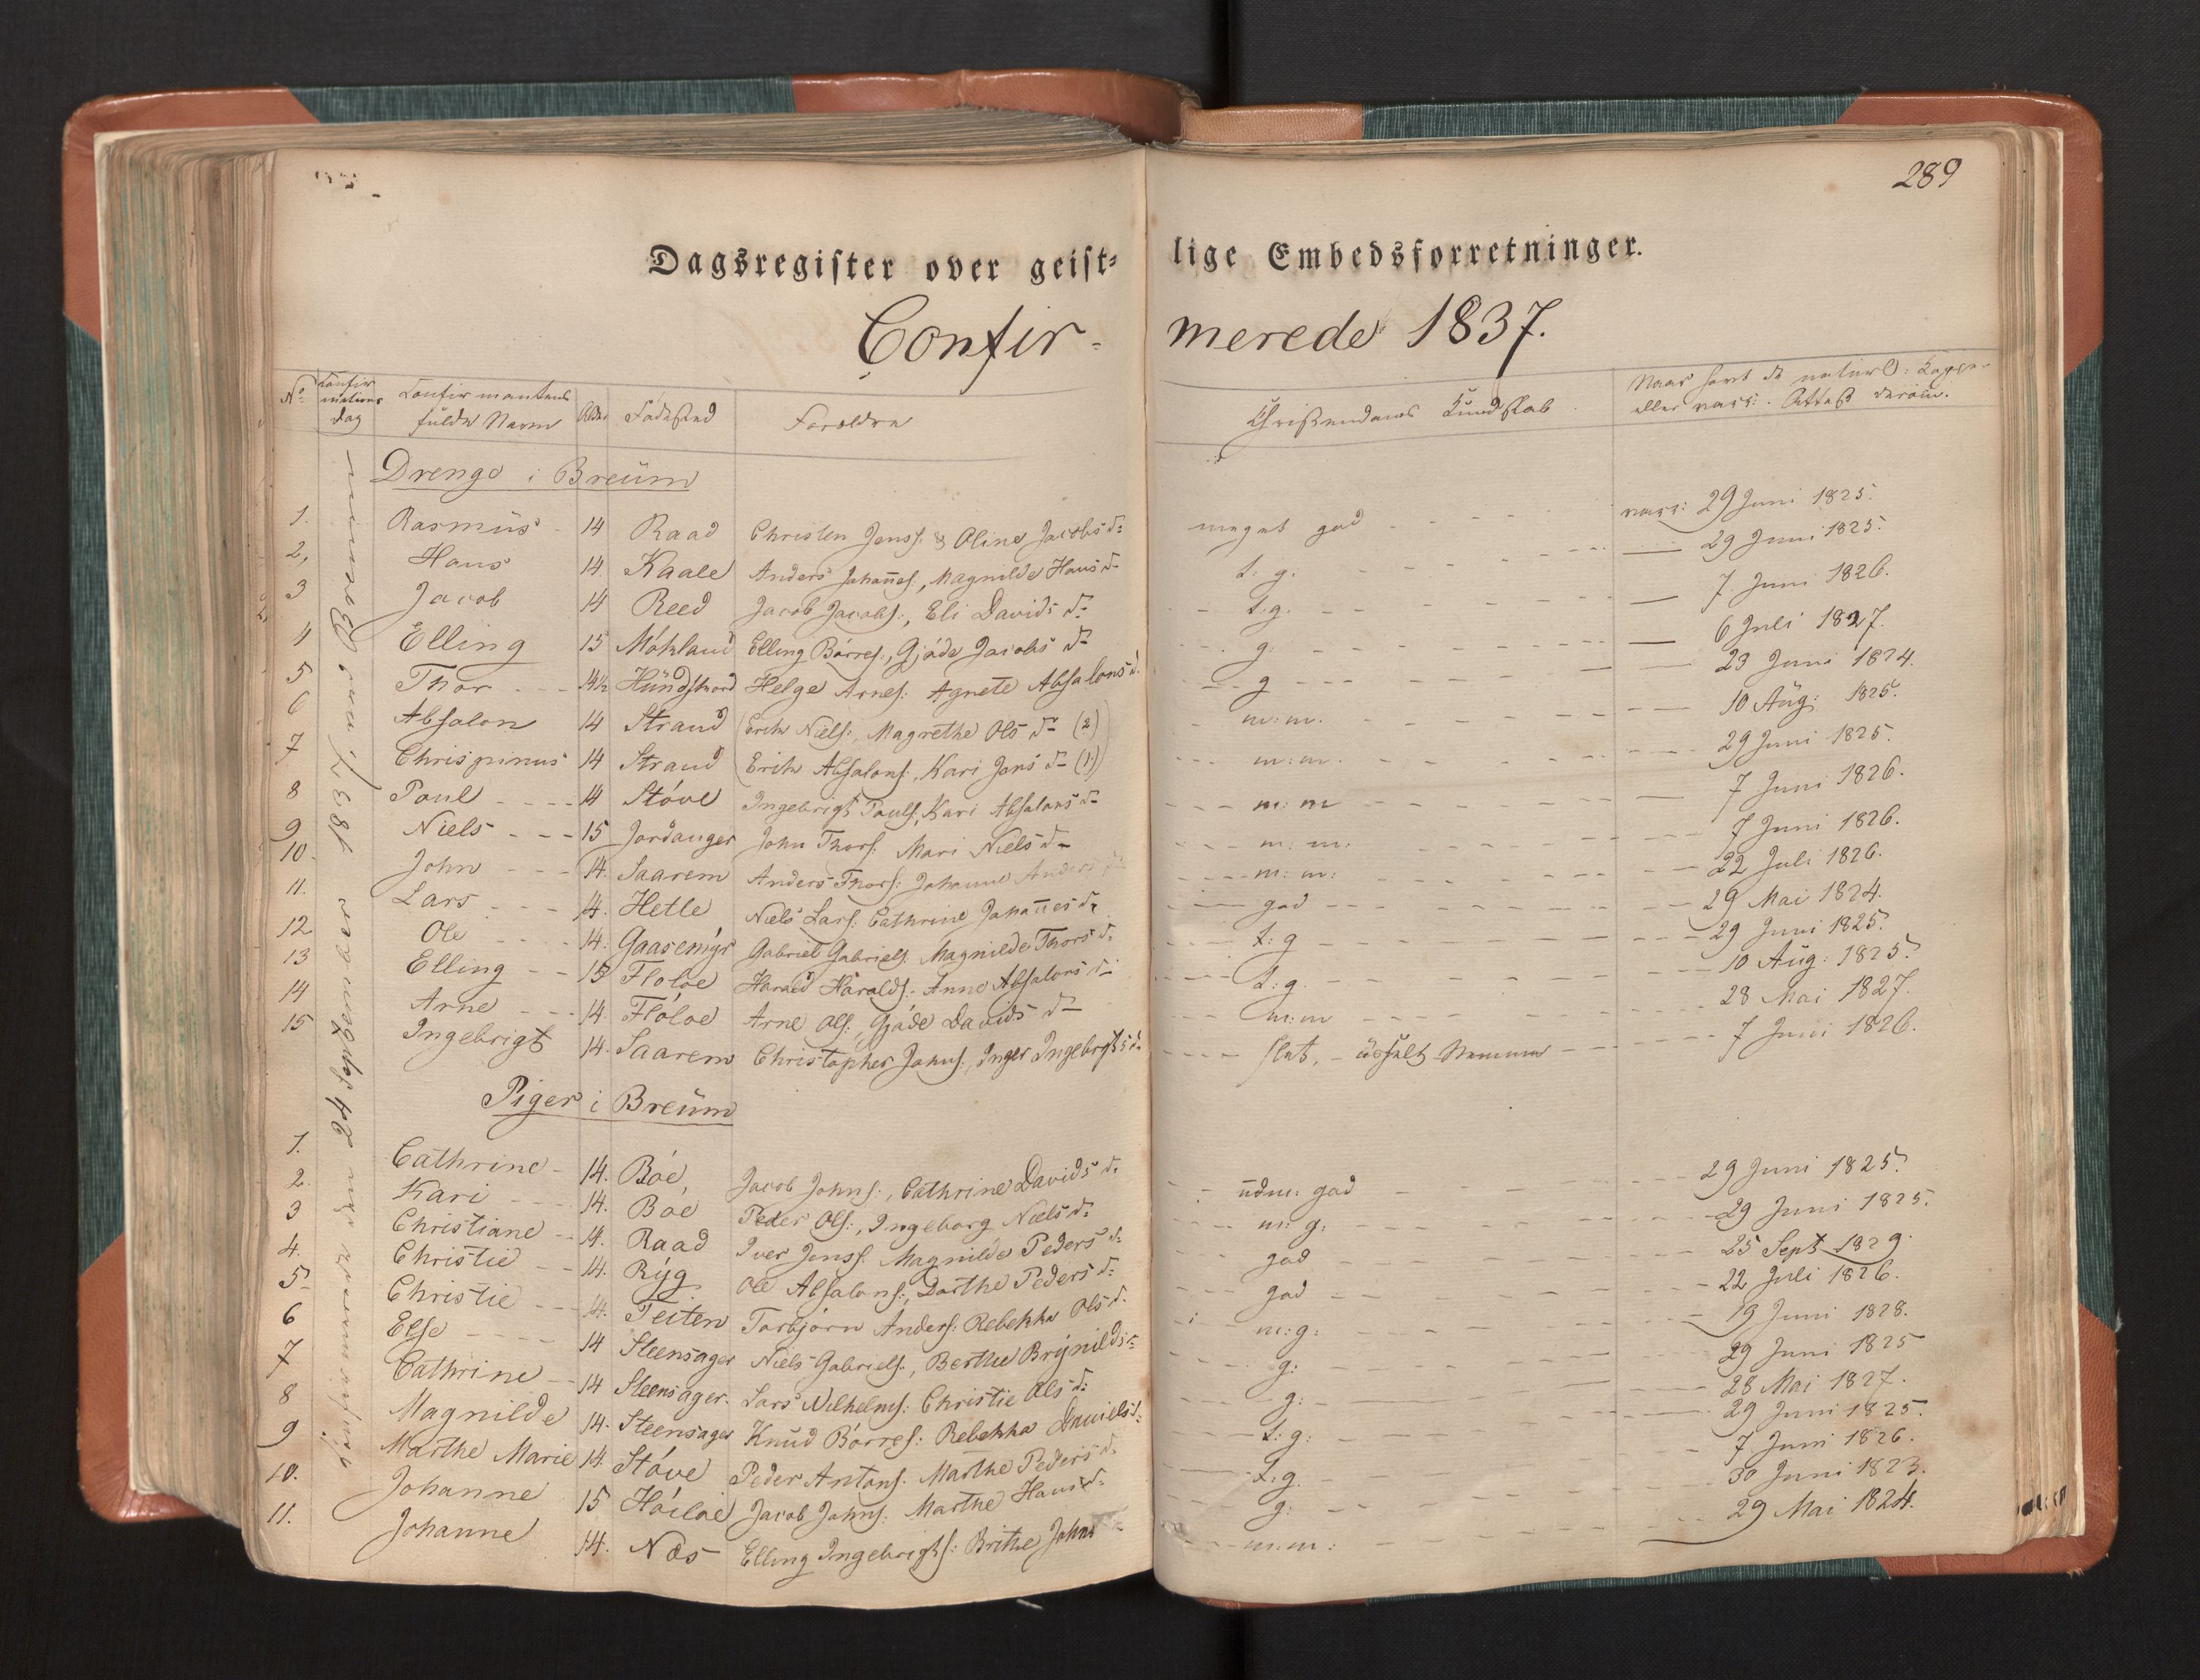 289
Dagsregister over geist-
lige Embedsforretninger.
Confir-
merede 1837.
No Confirmations dag
Confirmantens fulde Navn
Alder
Födested
Forældre
Christendoms Kundskab
Naar havt de naturl: Koppe-
eller vacc: Attest derom.
Confirmerede den 24 September 1837 fra Breum
Drenge i Breüm
1. Rasmüs - 14 Raad Christen Jenss. & Oline Jacobsd: meget god - - - vacc: 29 Juni 1825.
2, Hans 14 Kaale Anders Johañes:, Magnilde Hansd: t: g. - - - 29 Juni 1825.
3 Jacob 14 Reed Jacob Jacobs:, Eli Davidsd: t.g. - - - 7 Juni 1826.
4 Elling 15 Mókland Elling Bórres:, Gjóde Jacobsd: g. - - - 6 Juli 1827.
5 Thor - - 14½ Helge Arnes: Agnete Absalonsd: g - - - 23 Juni 1824.
6 Absalon 14 Strand (Erik Niels:, Magrethe Olsd: (2) m:m. - - - 10 Aüg: 1825.
7 Chrispinus 14 Strand (Erik Absalons:, Kari Jensd: (1) m:m. - - - 29 Juni 1825.
8 Paul - - - 14 Stóve Ingebrigt Pauls, Kari Absalonsd: m:m - - - 7 Juni 1826.
9 Niels - - - 15 Jordanger John Thors: Mari Nielsd: m:m: - - - 7 Juni 1826.
10. John - - - 14. Saarem Anders Thors: Johanne Anders m:m: - - - 22 Juli 1826.
11. Lars - - - 14. Hetle Niels Lars: Cathrine Johañesd: god - - - 29 Mai 1824.
12 Ole - - - 14. Gaasemÿr Gabriel Gabriels. Magnilde Thorsd: t:g - - - 29 Juni 1825.
13 Elling - - 15 Floloe Harald Haralds: Anne Absalonsd: t:g. - - - 10 Aug: 1825.
14 Arne - - - 14. Flóloe Arne Ols:, Gjóde Davidsd: m:m - - - 28 Mai 1827.
15 Ingebrigt 14. Saarem Christopher Johns:, Inger Ingebrigtsd: slet, - - - 7 Juni 1826.
Piger i Breüm
1. Cathrine - 14. Bóe, Jacob Johns:, Cathrine Davidsd: üdm: god - - - 29 Juni 1825.
2. Kari - - 14. Bóe Peder Ols:, Ingeborg Nielsd: m: g: - - - 29 Juni 1825.
3 Christiane - 14. Raad Iver Jenss: Magnilde Pedersd: god - - - 25 Sept 1829.
4. Christie - - 14. Rÿg Ole Absalons:, Dorthe Pedersd: god - - - 22 Juli 1826.
5 Christie - - 14. Teiten Torbjórn Anders: Rebekka Olsd: m:g: - - - 19 Juni 1828.
6 Else - - - 14 Steensager Niels Gabriels:, Berthe Brÿnildsd: g: - - - 29 Juni 1825
7 Cathrine - 14 Steensager. Lars Wilhelms: Christie Olsd: g: - - - 28 Mai 1827.
8 Magnilde 14. Steensager Knüd Bórres: Rebekka Danielsd: t:g: - - - 29 Juni 1825.
9 Marthe Marie 14. Stóve Peder Antons: Marthe Pedersd: t.g. - - - 7 Juni 1826.
10. Johanne 15 Hóiloe Jacob Johns: Marthe Hansd: g: - - - 30 Juni 1823.
11. Johanne 14. Nós Elling Ingebrigts: Brithe Johns m:m: - - - 29 Mai 1824.